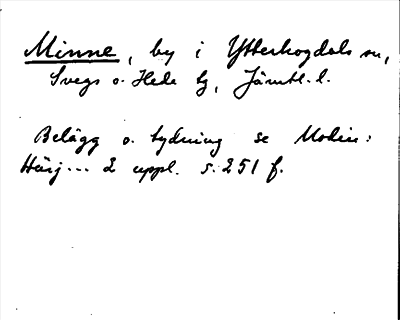 Minne, by i Ytterhogdals sn,
Svegs o. Hede tg, Jämtl. l.
Belägg o. tydning se Modin:
Härj... 2 uppl. s. 251 f.